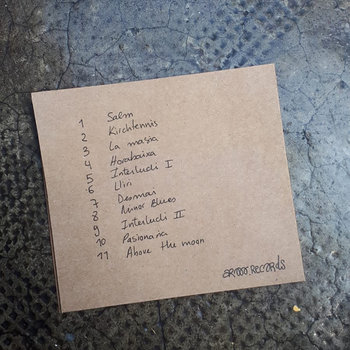 1 Salm
2 Kirchtennis
3 La masia
4 Horabaixa
5 Interludi I
6 Lliri
7 Desmai
8 Minor Blues
9 Interludi II
10 Pasionaria
11 Above the moon
records